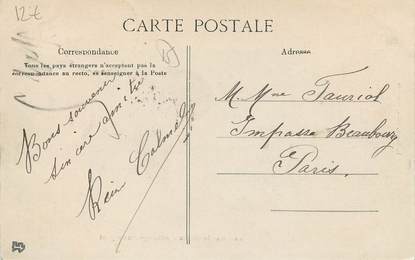 12€
CARTE POSTALE
Correspondance
Tous les pays étrangers n'acceptent pas la
correspondance au recto, se renseigner à la Poste
Bons souvenirs
sincère amitié
Adresse
M. Mme Tauriol
Impasse Beaubourg
Paris.